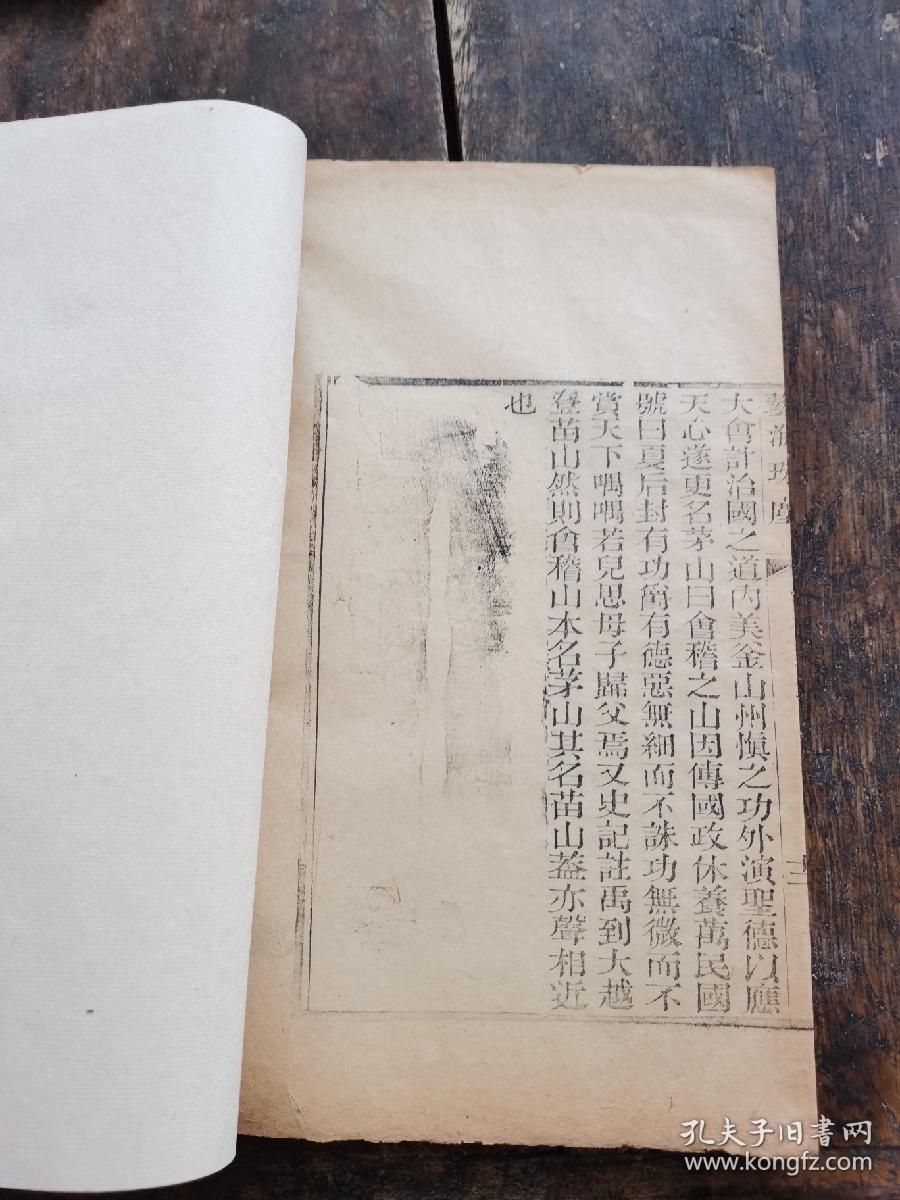 大會計治國之道內美釜山州愼之功外演聖德以應
天心遂更名茅山曰會稽之山因傳國政休養萬民國
號曰夏后封有功爵有德惡無細而不誅功無微而不
賞天下喁喁若兒思母子歸父焉又史記註禹到大越
登苗山然則會稽山本名茅山其名苗山葢亦聲相近
也
孔夫子旧書网
www.kongfz.com